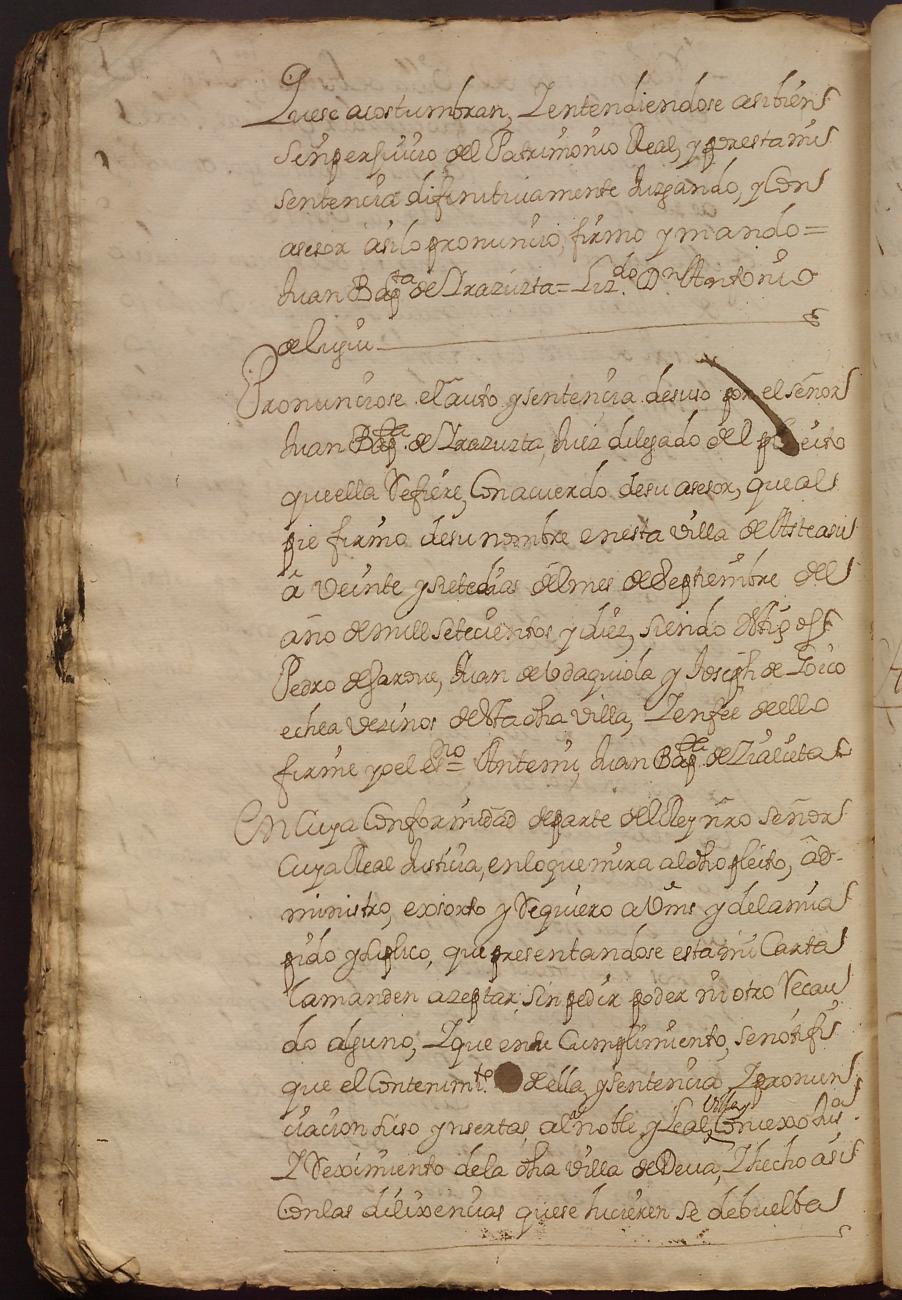 Que se acostumbran, Y entendiendose asibien
sin perjuicio del Patrimonio Real, y por esta mi
sentencia difinitivamente Juzgando, y con
asesor asilo pronuncio, firmo y mando =
Juan Bapta de Yrazuzta = Lizdo Dn Antonio
de Lugiu
Pronunciose el auto y sentencia de suso por el señor
Juan Bapta de Yrazuzta, Juez delegado del pleito
que ella Refiere, Con acuerdo de su asesor, que al
pie firmo de su nombre en esta villa de Asteasu
â Veinte y siete dias del mes de Septiembre del
año de mill setecientos y diez, siendo ttigos
Pedro de Sarove, Juan de Udaquiola y Joseph de Goico
echea vezinos de sta dha villa, Y en fee de ello
firme yo el essno = Ante mi, Juan Bapta de Zialceta
En Cuya Conformidad de parte del Rey nro señor
Cuya Real Justicia, en lo que mira al dho pleito, ad-
ministro, exsorto y Requiero a Vms y de la mia
pido y suplico, que presentandose esta mi Carta
la manden azeptar, sin pedir poder ni otro Recau
do alguno, Y que en su Cumplimiento, se notifi
que el Contenimto de ella, y sentencia, Y pronun
ciacion suso ynsertas, al noble y Leal villa, Concexo Jusa
Y Reximiento de la dha villa de Deva, Y hecho asi
Con las dilixencias que se hicieren se debuelba